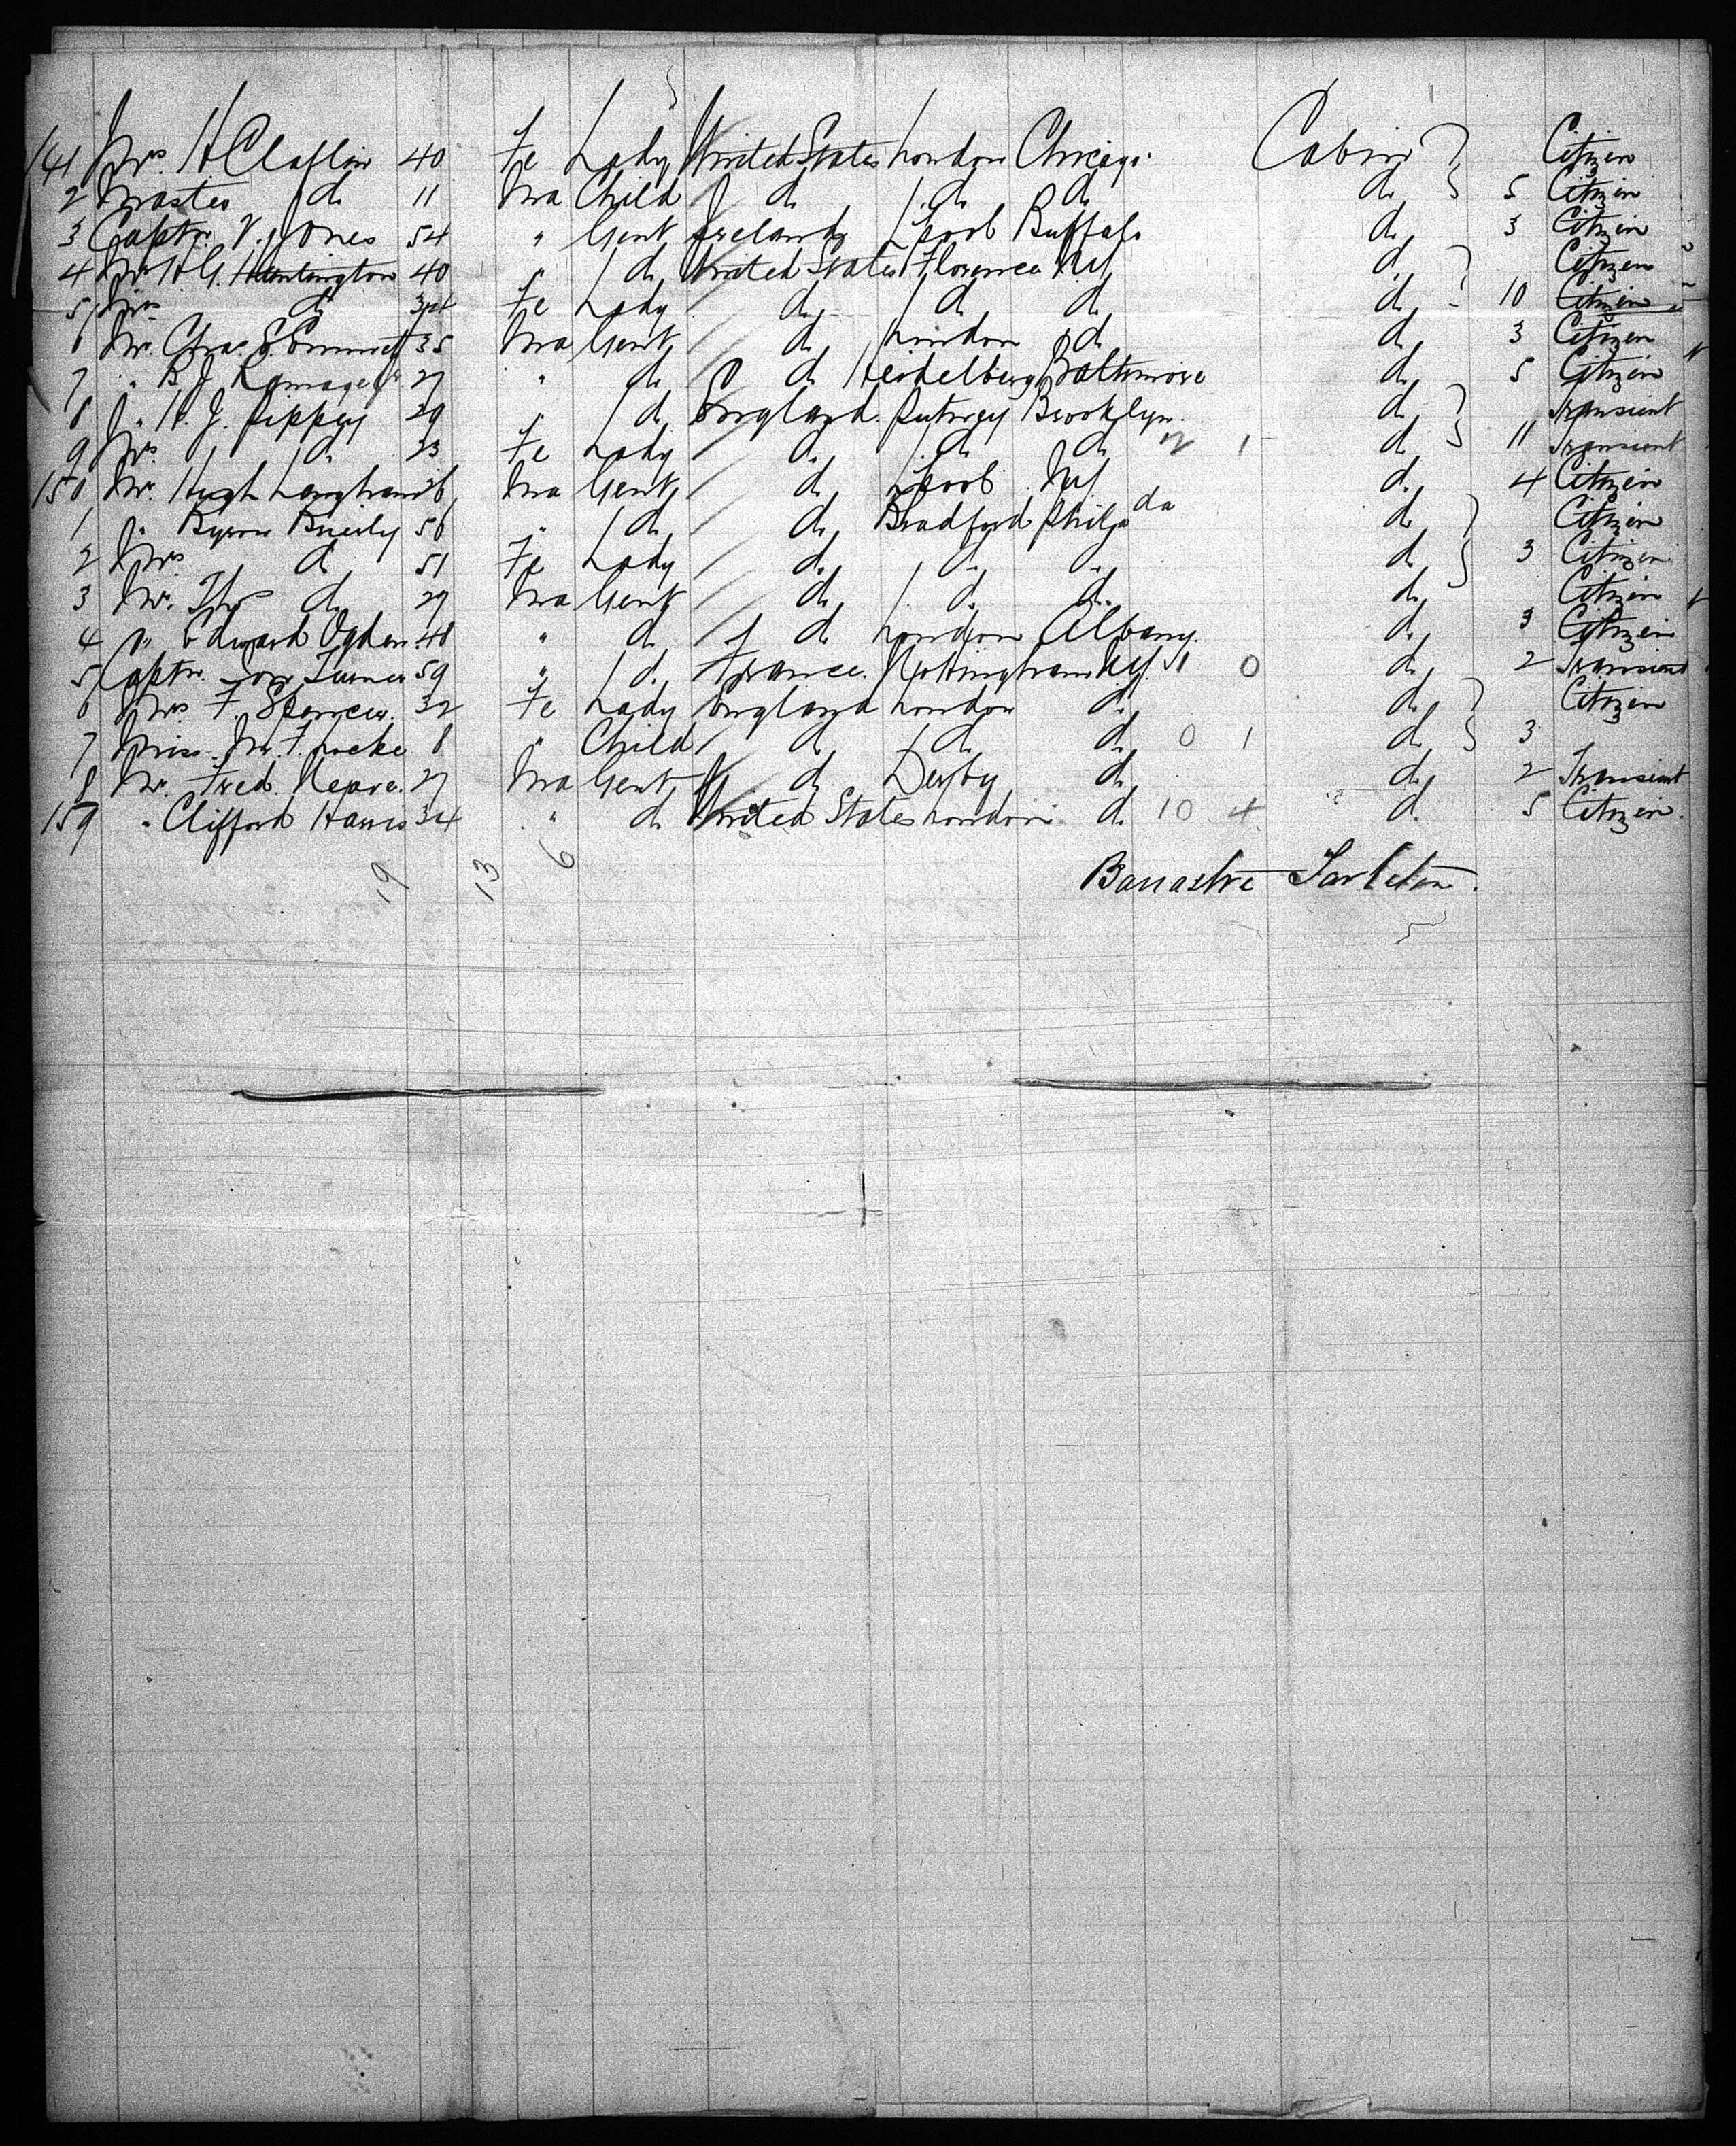 141 Mrs. H Claflin 40 Fe Lady United States London Chicago. Cabin } Citizen
2 Master do 11 Ma Child do do do do } 5 Citizen
3 Captn. V. Jones 54 " Gent Ireland L'pool Buffalo do 3 Citizen
4 Mr H.G. Huntington 40 " do United States Florence NY do } Citizen
5 Mrs do 34 Fe Lady do do do do } 10 Citizen
6 Mr. Chas. S. Emmett 35 Ma Gent do London do do 3 Citizen
7 " B. J. Ramage 27 " do do Heidelberg Baltimore do 5 Citizen
8 " H. J. Pippey 29 " do England Putney Brooklyn. do } Transient
9 Mrs. do 23 Fe Lady do do do 2 1 do } 11 Transient
150 Mr. Hugh Ma Gent do L'pool NY do 4 Citizen
1 " Byron Brierly 56 " do do Bradford Philada do } Citizen
2 Mrs do 51 Fe Lady do do do do } 3 Citizen
3 Mr. Thos do 29 Ma Gent do do do do Citizen
4 " Edward Ogden 48 " do do London Albany. do 3 Citizen
5 Captn. Turner 59 " do France. Nottingham NY 11 0 do 2 Transient
6 Mrs F. Spencer. 32 Fe Lady England London do do } Citizen
7 Miss. M. F. Locke 8 " Child do do do 0 1 do } 3
8 Mr. Fred. 27 Ma Gent do Derby do do 2 Transient
159 " Clifford Harris 34 " do United States London do 10 4 do 5 Citizen.
19 13 6 Banastre Tarleton.